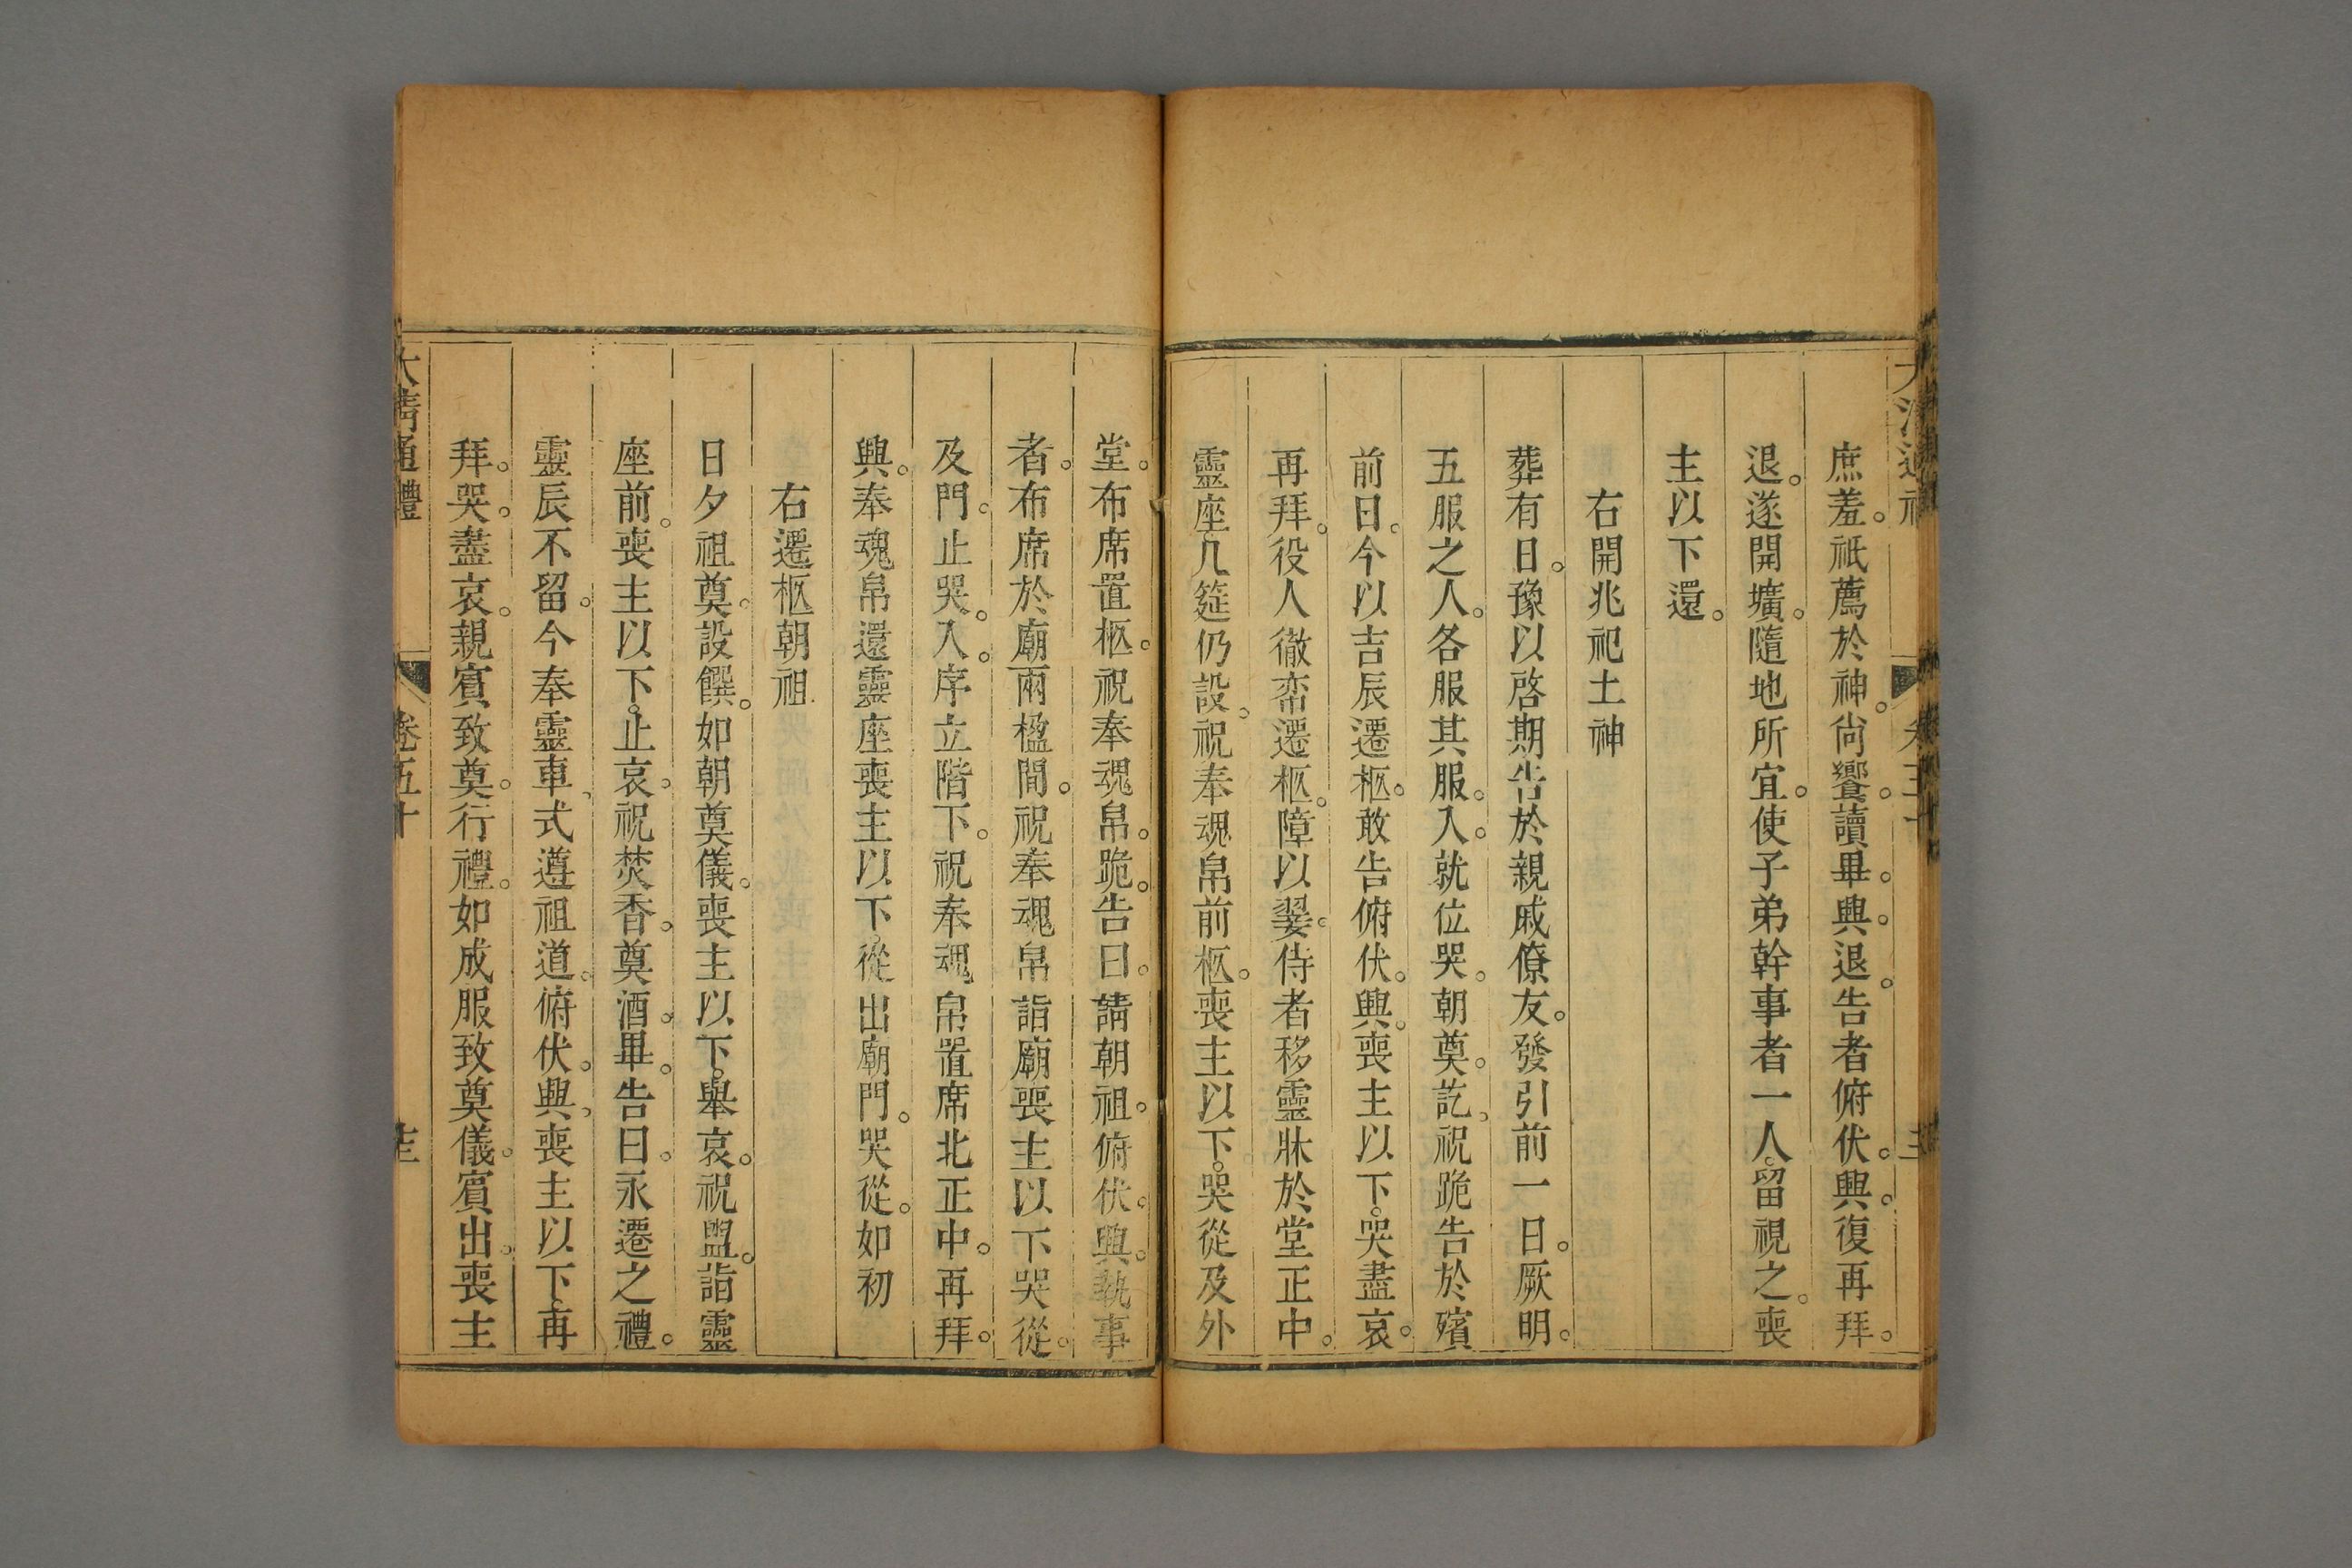 庶羞。祇薦於神。尙饗。讀畢。興。退。告者俯伏。興。復再拜。
退。遂開壙。隨地所宜。使子弟幹事者一人。留視之。喪
主以下還。
右開兆祀土神
葬有日。豫以啓期告於親戚僚友。發引前一日。厥明。
五服之人。各服其服。入。就位哭。朝奠。訖。祝跪告於殯
前日。今以吉辰遷柩。敢告俯伏。興。喪主以下。哭盡哀。
再拜。役人徹帟遷柩。障以翣。侍者移靈牀於堂正中。
靈座几筵仍設。祝奉魂帛前柩。喪主以下。哭從及外
堂。布席置柩。祝奉魂帛。跪。告曰。請朝祖。俯伏。興。執事
者。布席於廟兩楹間。祝奉魂帛詣廟喪主以下哭從。
及門。止哭。入。序立階下。祝奉魂帛置席北正中。再拜。
興。奉魂帛還靈座喪主以下。從出廟門。哭從。如初
右遷柩朝祖
日夕祖奠。設饌。如朝奠儀。喪主以下。舉哀。祝盥。詣靈
座前。喪主以下。止哀。祝焚香。奠酒。畢。告曰。永遷之禮。
靈辰不留。今奉靈車。式遵祖道。俯伏。興。喪主以下。再
拜。哭。盡哀。親賓致奠。行禮。如成服致奠儀。賓出。喪主
大清通禮
卷五十